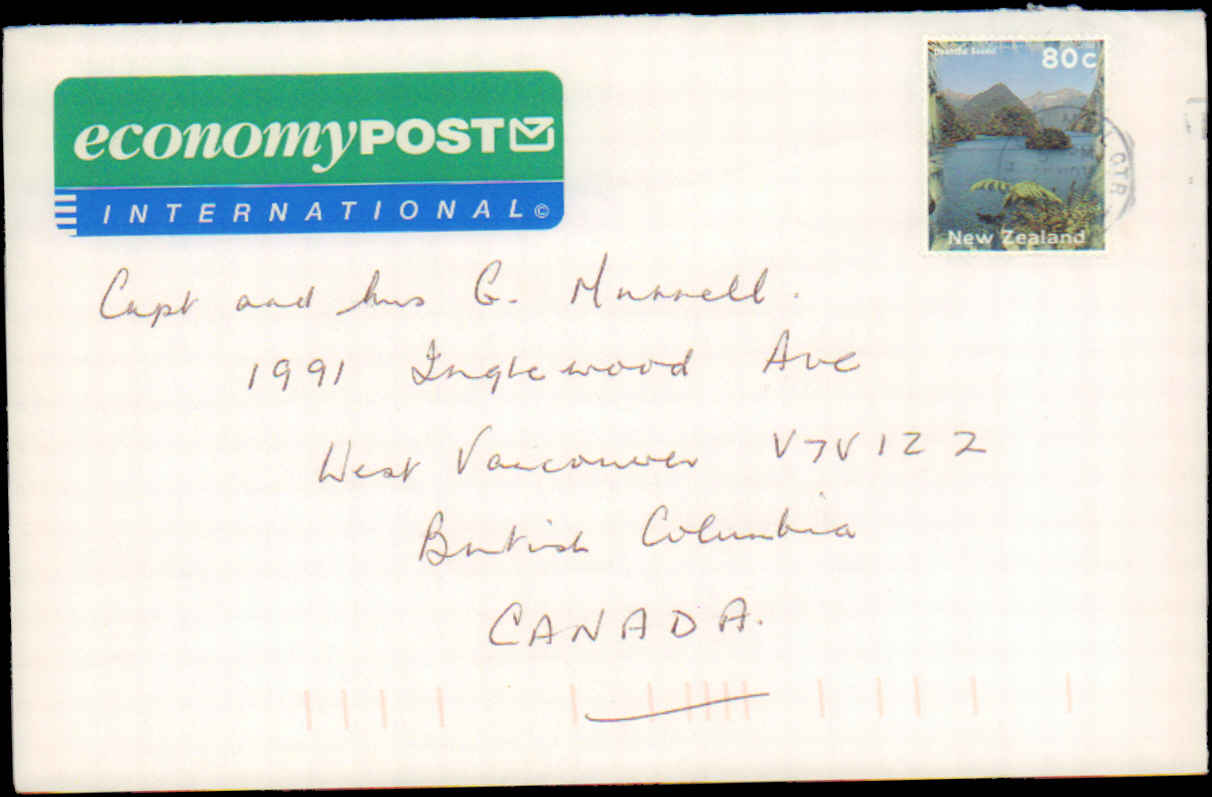 economyPOST
INTERNATIONAL©
80c
New Zealand
CTR
Capt and Mrs G. Murrell.
1991 Inglewood Ave
West Vancouver V7V1Z2
British Columbia
CANADA.